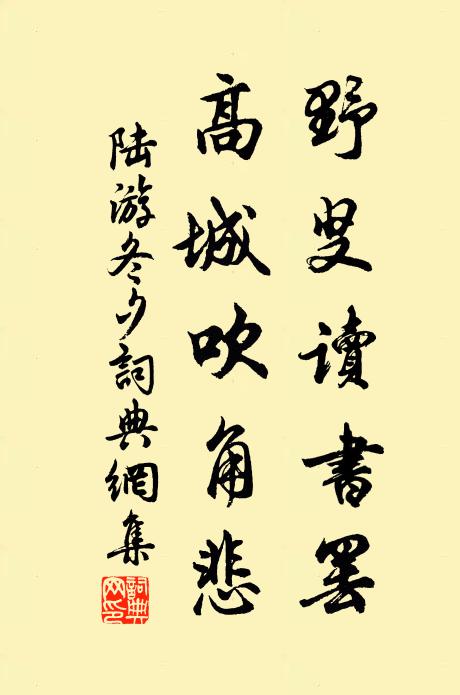 野叟讀書罷
高城吹角悲
陆游冬夕詞典網集
詞典網印